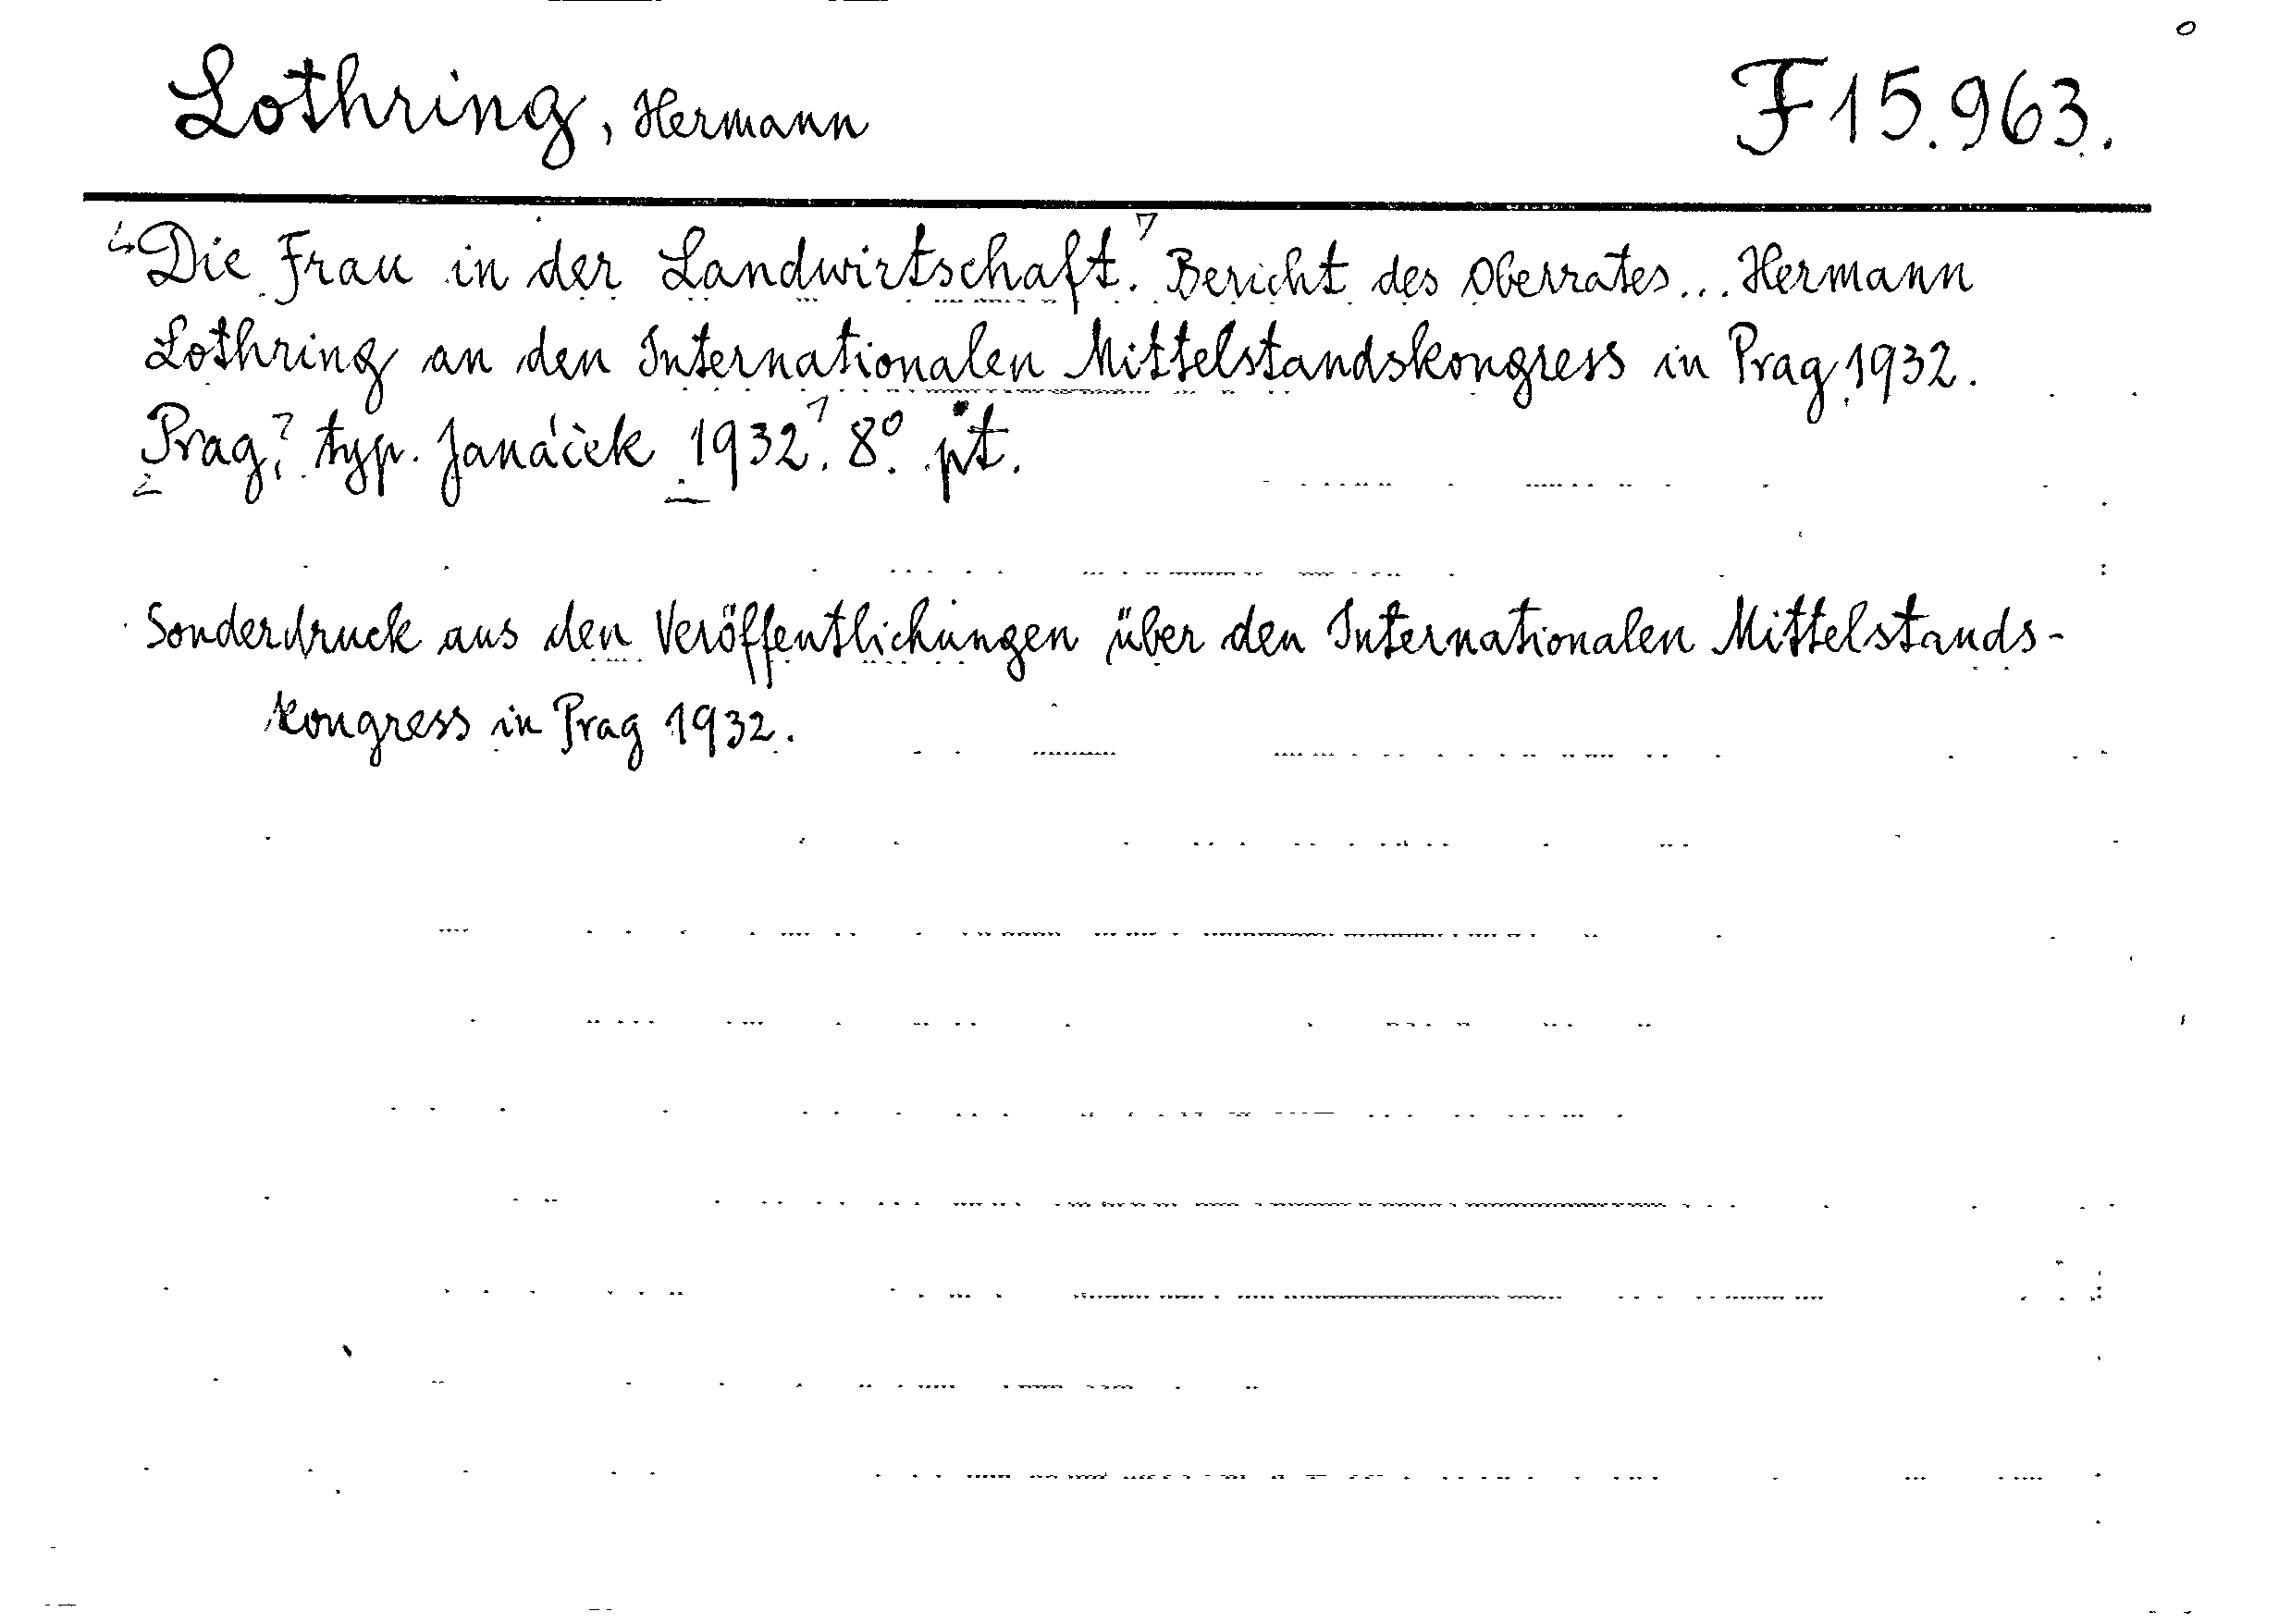 Lothring, Hermann F 15.963.
Die Frau in der Landwirtschaft. Bericht des Oberrates... Hermann
Lothring an den Internationalen Mittelstandskongress in Prag 1932.
Prag, typ. Janáček 1932. 8°. pt.
Sonderdruck aus den Veröffentlichungen über den Internationalen Mittelstands-
kongress in Prag 1932.